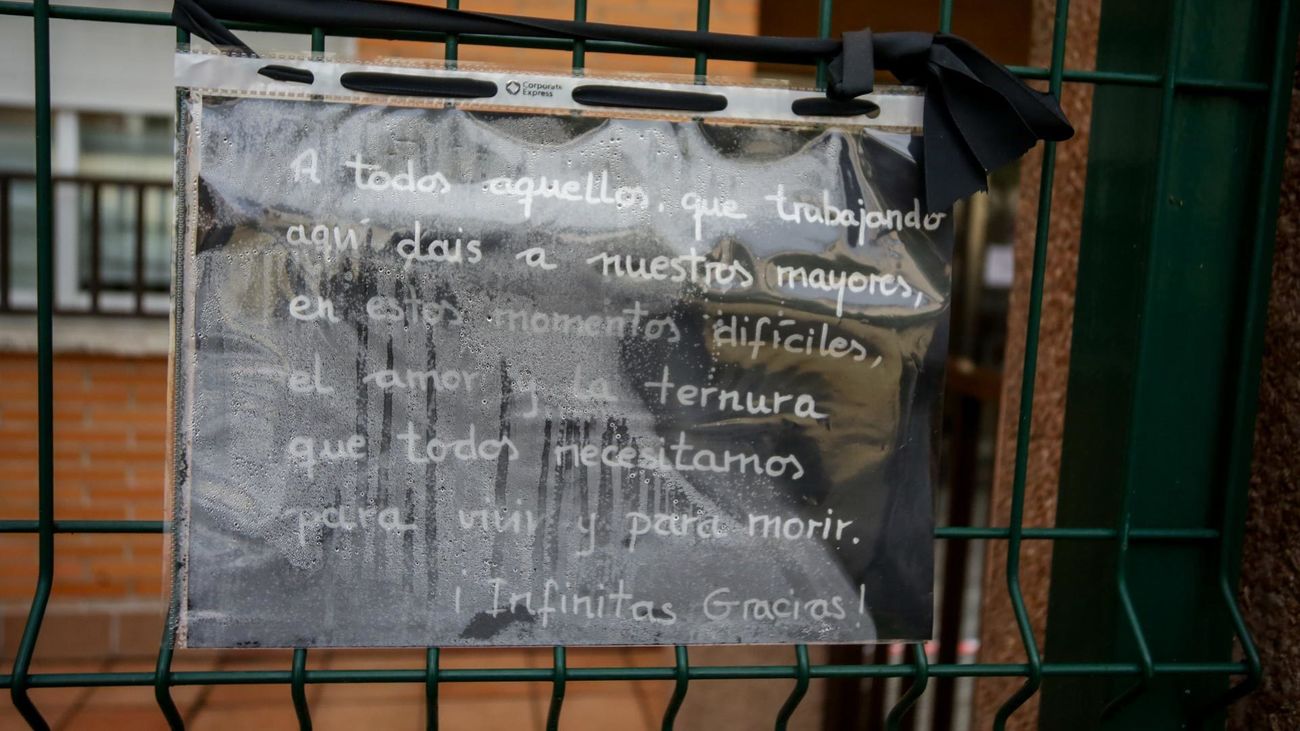 Corporate
Express
A todos aquellos, que trabajando
aquí dais a nuestros mayores,
en estos momentos difíciles,
el amor y la ternura
que todos necesitamos
para vivir y para morir.
¡Infinitas Gracias!